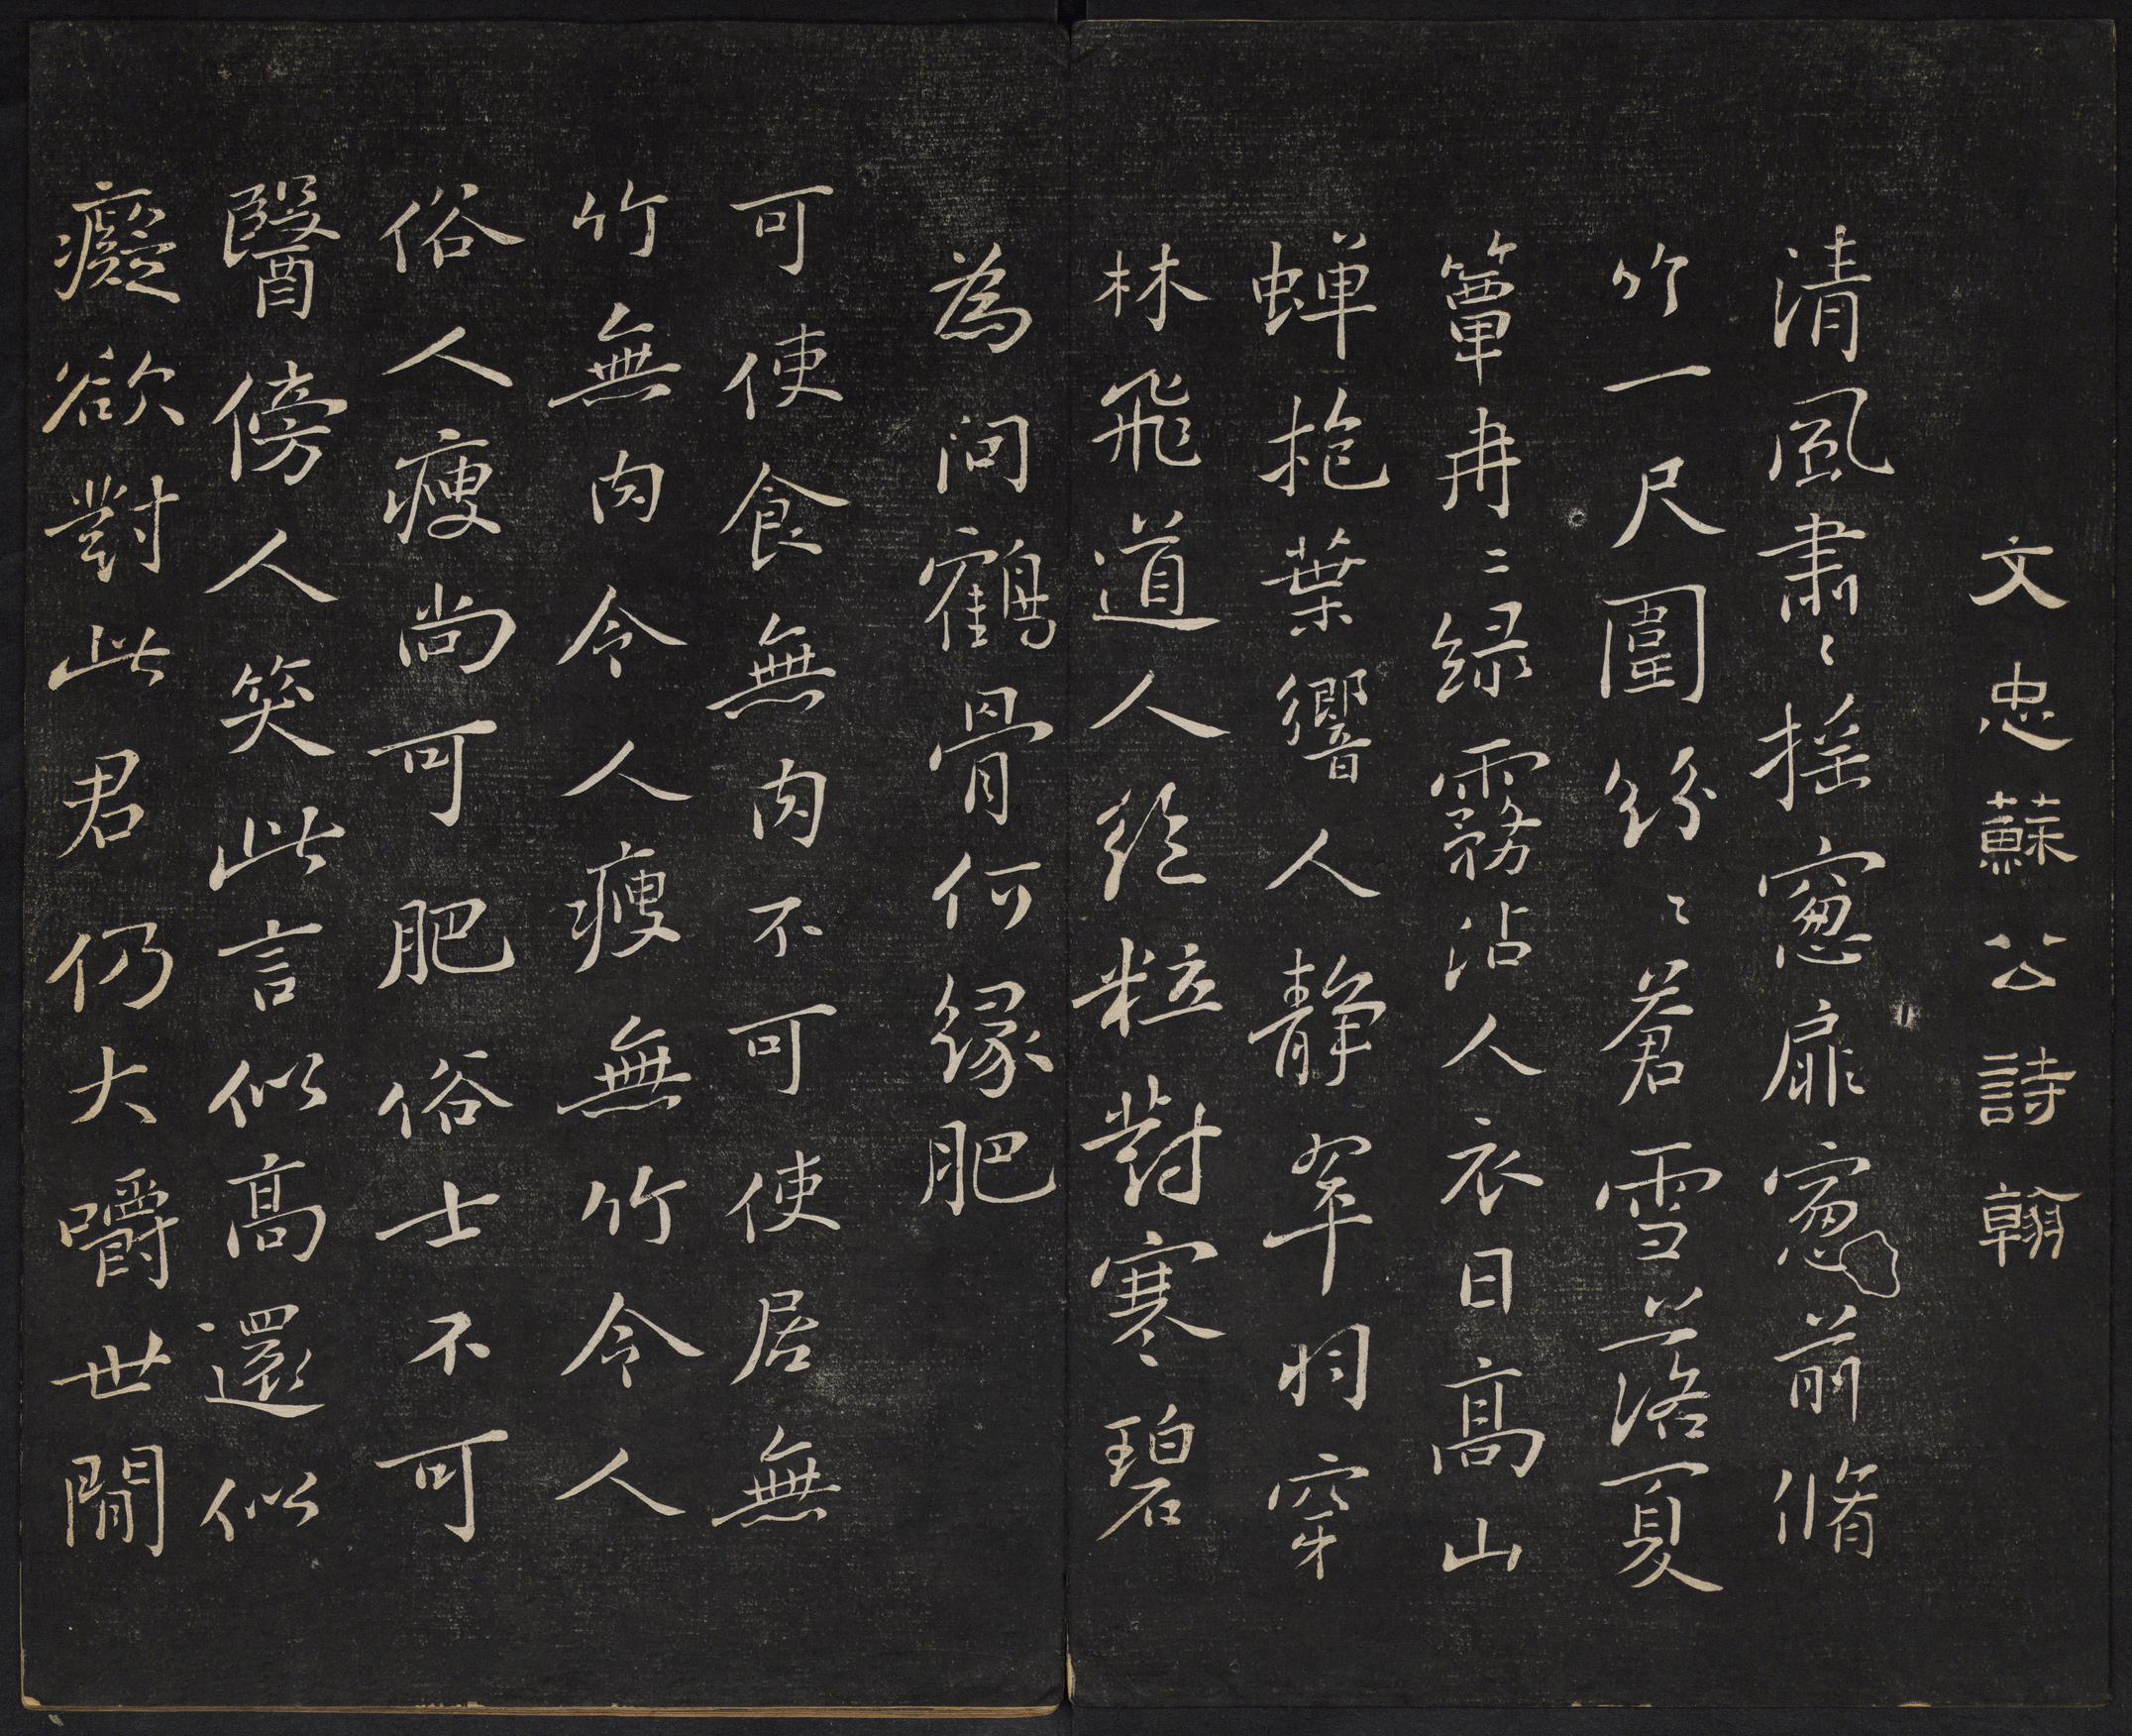 文忠蘇公詩翰
清風肅〻揺窻扉窻前脩
竹一尺圍紛〻蒼雪落夏
簟冉〻緑霧沾人衣日髙山
蟬抱葉響人靜翠羽穿
林飛道人絶粒對寒碧
為問鶴骨何緣肥
可使食無肉不可使居無
竹無肉令人瘦無竹令人
俗人瘦尚可肥俗士不可
醫傍人笑此言似髙還似
癡欲對此君仍大嚼世間